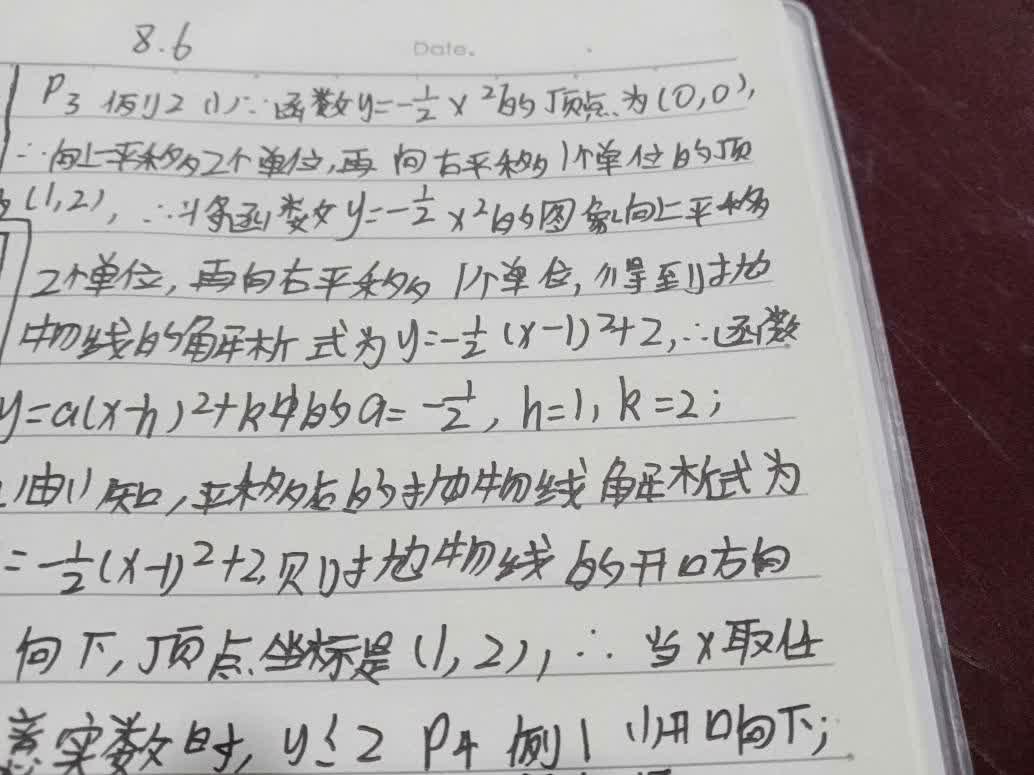 8.6
Date.
P3 例2 (1)∵函数y=-1/2 x²的顶点为(0,0),
∴向上平移2个单位,再向右平移1个单位的顶
(1,2), ∴将函数y=-1/2 x²的图象向上平移
2个单位,再向右平移1个单位,得到抛
物线的解析式为y=-1/2 (x-1)²+2,∴函数
y=a(x-h)²+k中的a=-1/2, h=1, k=2;
)由(1)知,平移后的抛物线解析式为
=-1/2(x-1)²+2,则抛物线的开口方向
向下,顶点坐标是(1,2),∴当x取任
意实数时, y≤2 P4 例1 (1)开口向下;